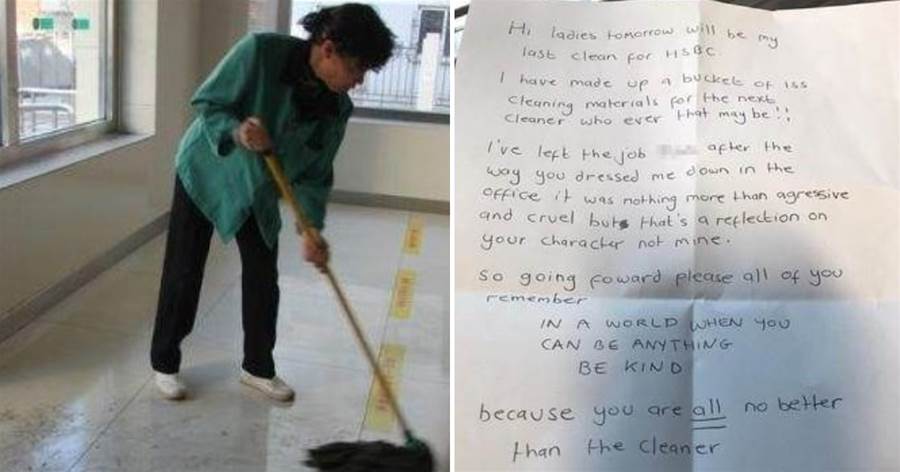 Hi ladies tomorrow will be my
last clean for HSBC.
I have made up a bucket of iss
cleaning materials for the next
cleaner who ever that may be!!
I've left the job after the
way you dressed me down in the
office it was nothing more than agressive
and cruel but that's a reflection on
your character not mine.
So going foward please all of you
remember
IN A WORLD WHEN YOU
CAN BE ANYTHING
BE KIND
because you are all no better
than the cleaner